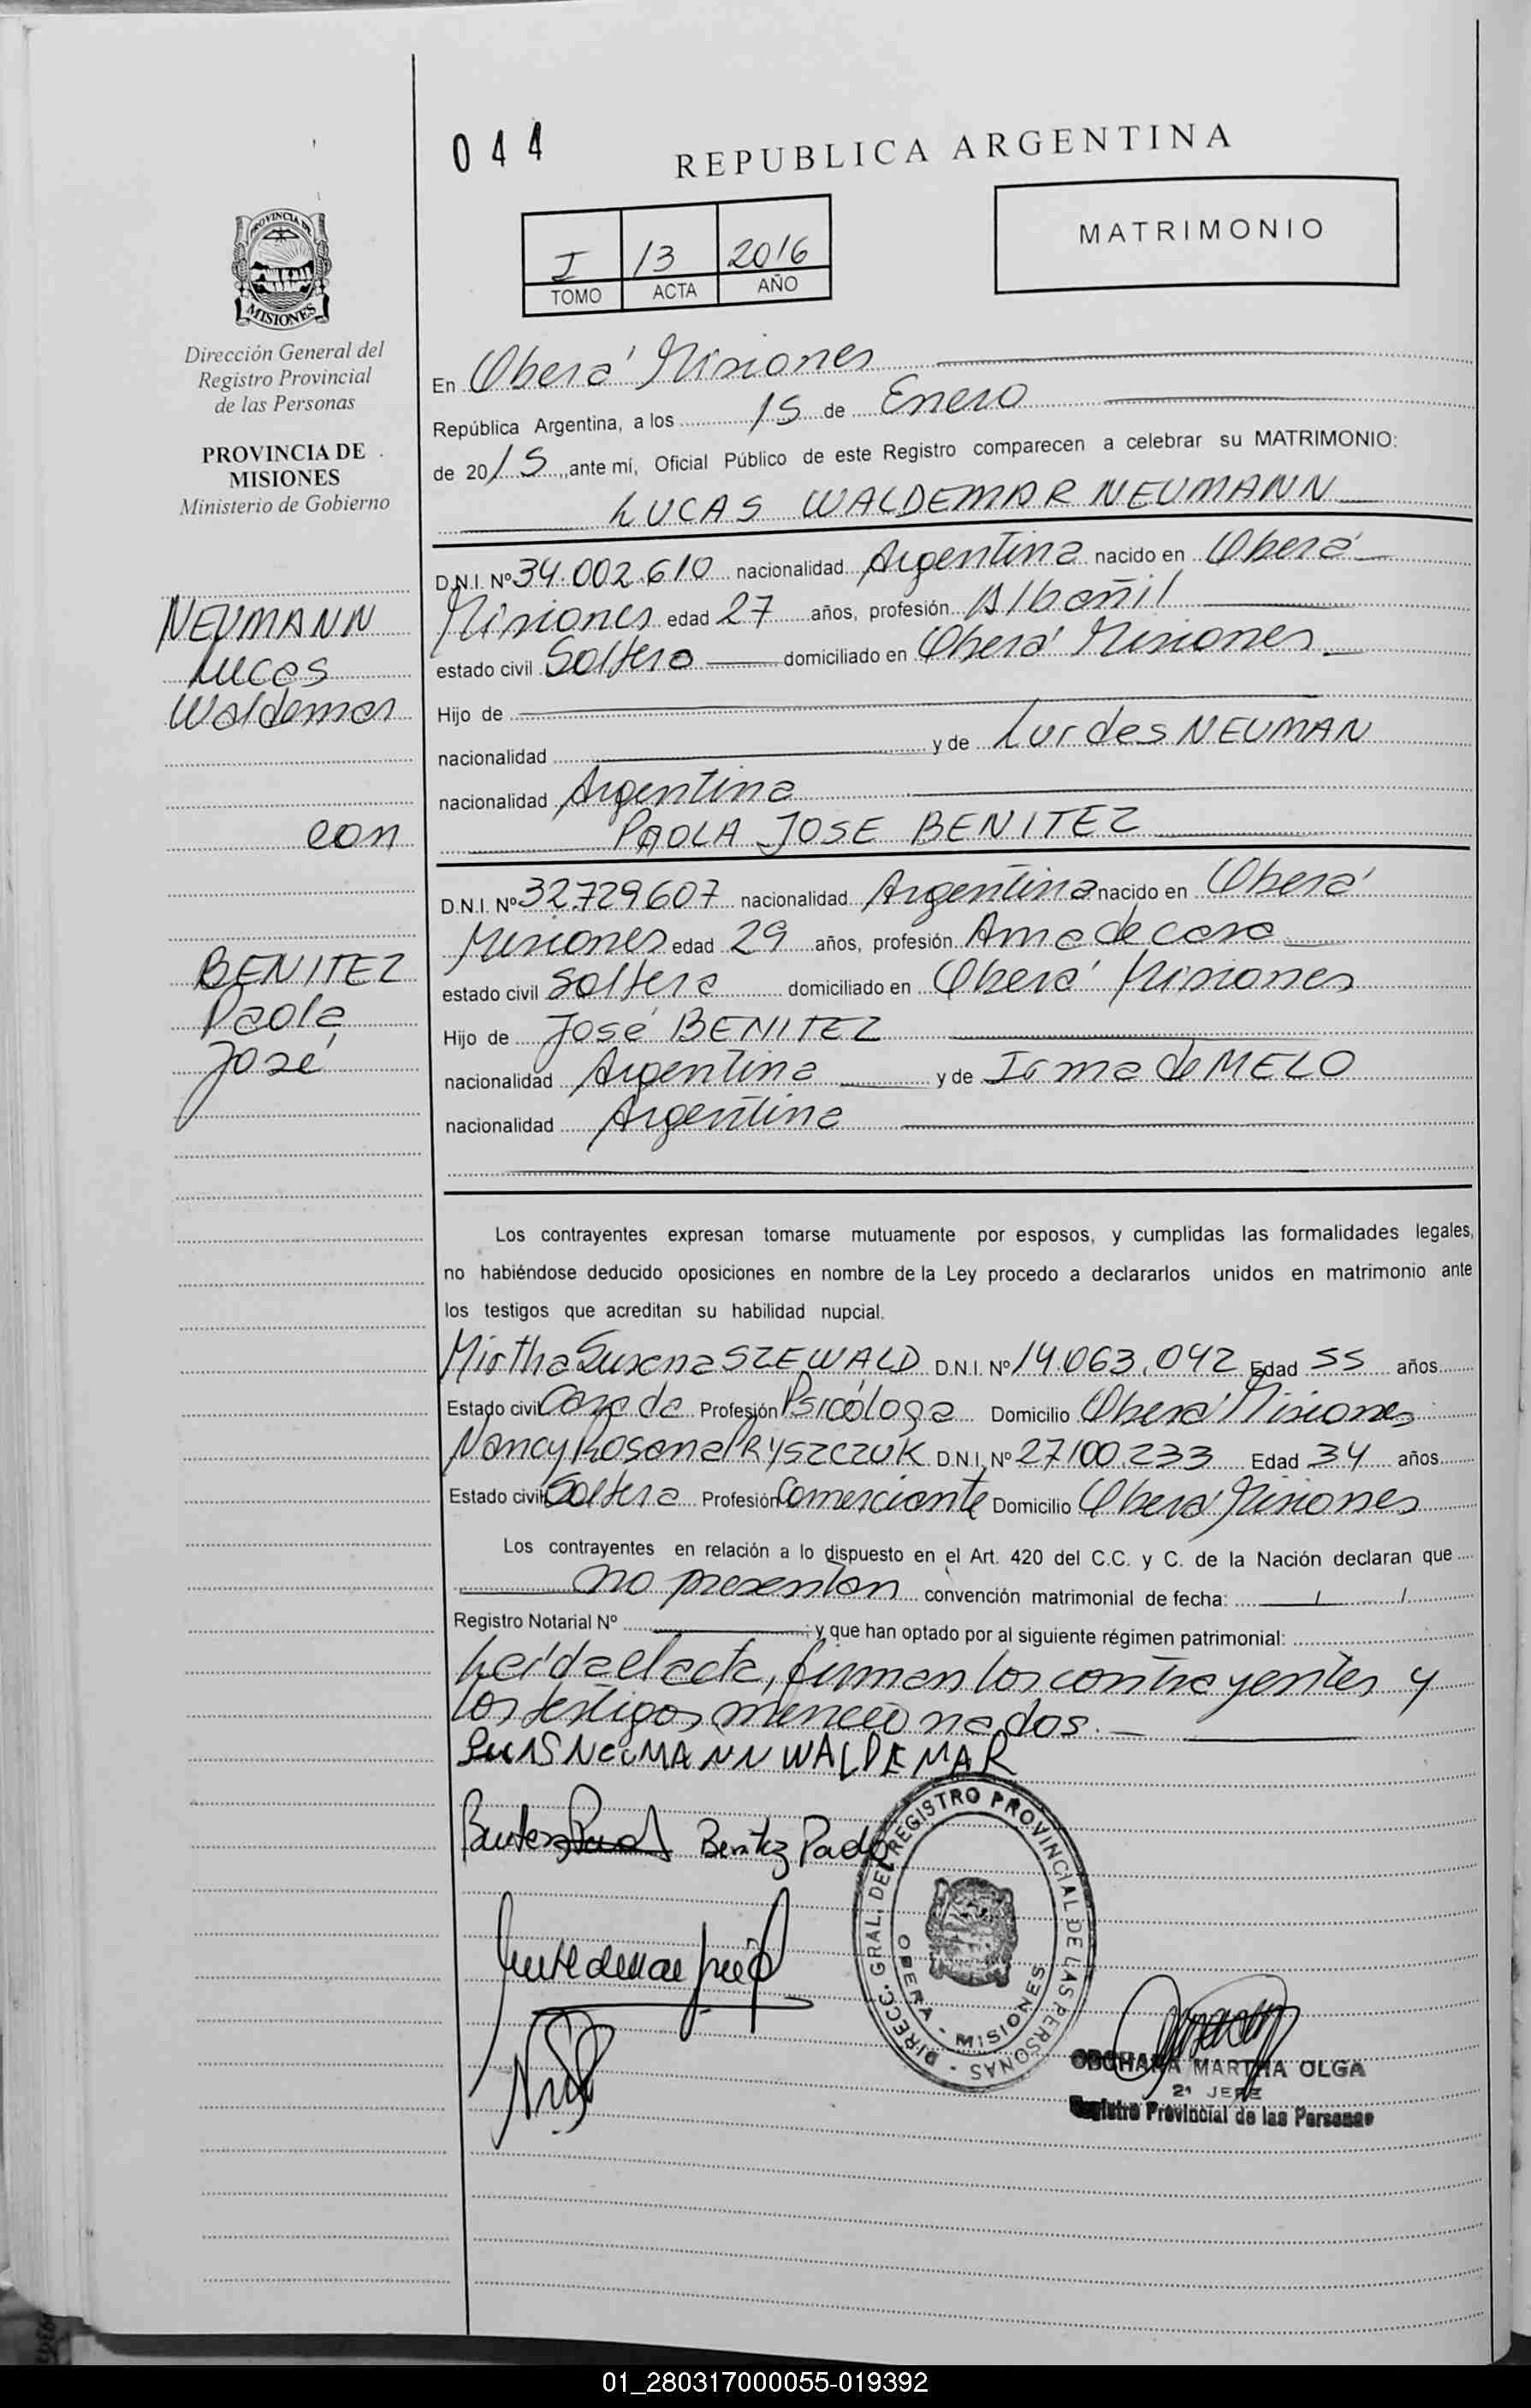 044
REPUBLICA ARGENTINA
PROVINCIA DE
MISIONES
I 13 2016
TOMO ACTA AÑO
MATRIMONIO
Dirección General del
Registro Provincial
de las Personas
PROVINCIA DE
MISIONES
Ministerio de Gobierno
En Oberá Misiones
República Argentina, a los 15 de Enero
de 2015, ante mí, Oficial Público de este Registro comparecen a celebrar su MATRIMONIO:
LUCAS WALDEMAR NEUMANN
D.N.I. Nº 34.002.610 nacionalidad Argentina nacido en Oberá
Misiones edad 27 años, profesión Albañil
estado civil Soltero domiciliado en Oberá Misiones
Hijo de
nacionalidad y de Lurdes NEUMAN
nacionalidad Argentina
PAOLA JOSE BENITEZ
D.N.I. Nº 32.729607 nacionalidad Argentina nacido en Oberá
Misiones edad 29 años, profesión Ama de casa
estado civil Soltera domiciliado en Oberá Misiones
Hijo de José BENITEZ
nacionalidad Argentina y de Irma de MELO
nacionalidad Argentina
NEUMANN
Lucas
Waldemar
con
BENITEZ
Paola
José
Los contrayentes expresan tomarse mutuamente por esposos, y cumplidas las formalidades legales,
no habiéndose deducido oposiciones en nombre de la Ley procedo a declararlos unidos en matrimonio ante
los testigos que acreditan su habilidad nupcial.
Mirtha Susana SZEWALD D.N.I. Nº 14.063.042 Edad 55 años
Estado civil Casada Profesión Psicóloga Domicilio Oberá Misiones
Nancy Rosana PRYSZCZUK D.N.I. Nº 27100.233 Edad 34 años
Estado civil Soltera Profesión Comerciante Domicilio Oberá Misiones
Los contrayentes en relación a lo dispuesto en el Art. 420 del C.C. y C. de la Nación declaran que
no presentan convención matrimonial de fecha: / /
Registro Notarial Nº ; y que han optado por al siguiente régimen patrimonial:
Leída el acta, firman los contrayentes y
los testigos mencionados.
NEUMANN WALDEMAR
Benitez Paola
DIRECC. GRAL. DEL REGISTRO PROVINCIAL DE LAS PERSONAS
OBERA - MISIONES
MARTHA OLGA
2ª JEFE
Registro Provincial de las Personas
01_280317000055-019392